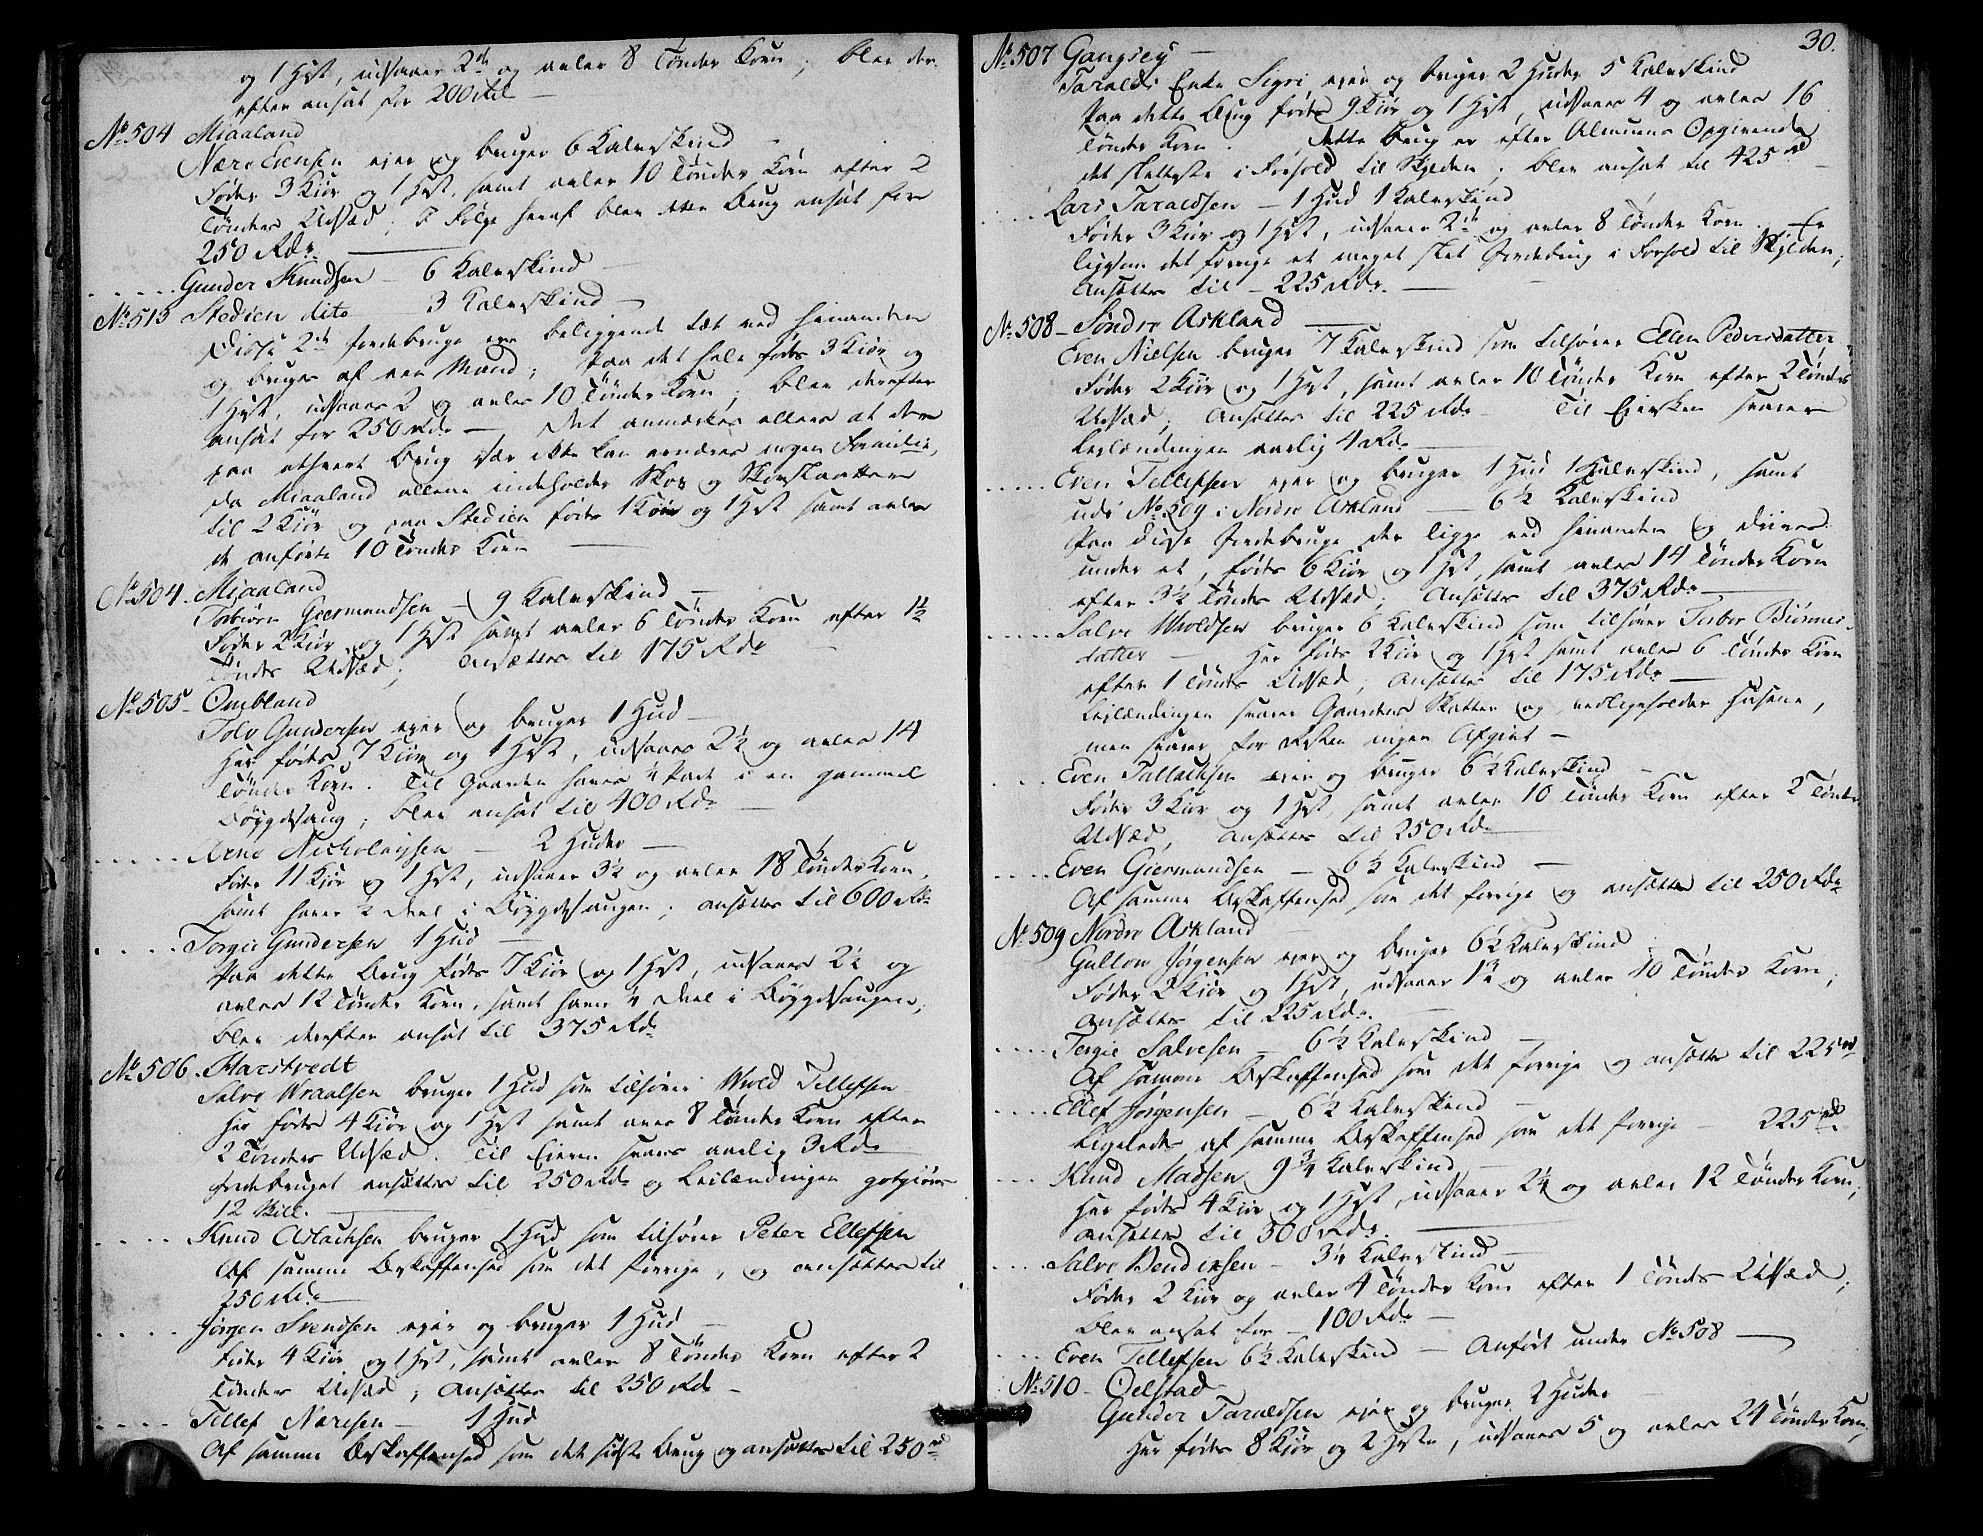 og 1 Hest, udsaaer 2de og avler 8 Tønder Korn; blev der-
efter ansat for 200 Rd
No 504 Miaaland
Nære Evensen ejer og bruger 6 Kalvskind
Føder 3 Kiør og 1 Hest, samt avler 10 Tønder Korn efter 2
Tønders Udsæd; I Følge heraf blev dette Brug ansat for
250 Rdr
Gunder Knudsen — 6 Kalvskind
No 513 Stedien dito 3 Kalvskind
Disse 2de Jordebruge ere beliggende tæt ved hinanden
og bruges af een Mand; paa det hele fødes 3 Kiør og
1 Hest, udsaaes 2 og avles 10 Tønder Korn; blev derefter
ansat for 250 Rdr — Det anmærkes ellers at der
paa ethvert Brug især ikke kan ernæres nogen Familie,
da Miaaland allene indeholder Skov og
til 2 Kiør og paa Stedien fødes 1 Koe og 1 Hest samt avles
de anførte 10 Tønder Korn
No 504. Miaaland
Torbiørn Giermundsen — 9 Kalvskind
Føder 2 Kiør og 1 Hest samt avler 6 Tønder Korn efter 1½
Tønders Udsæd; ansættes til 175 Rdr
No 505 Ombland
Tolv Gundersen ejer og bruger 1 Hud
Her fødes 7 Kiør og 1 Hest, udsaaes 2½ og avles 14
Tønder Korn. Til Gaarden haves ¼ Part i en gammel
Bøygdesaug; blev ansat til 400 Rdr
Arne Nicholaysen — 2 Huder
Føder 11 Kiør og 1 Hest, udsaaer 3½ og avler 18 Tønder Korn,
samt haver ½ Deel i Bøygdesaugen; ansættes til 600 Rdr
Torgie Gundersen 1 Hud
Paa dette Brug fødes 7 Kiør og 1 Hest, udsaaes 2½ og
avles 12 Tønder Korn, samt haver ¼ Deel i Bøygdesaugen;
blev derefter ansat til 375 Rdr
No 506. Harstvedt
Salve Wraalsen bruger 1 Hud som tilhører Wrold Tellefsen
Her fødes 4 Kiør og 1 Hest samt avles 8 Tønder Korn efter
2 Tønders Udsæd. Til Eieren svares aarlig 3 Rdr
Jordebruget ansættes til 250 Rdr og Leilændingen godgiøres
12 Skill.
Knud Aslachsen bruger 1 Hud som tilhører Peter Ellefsen
Af samme Beskaffenhed som det forrige, og ansættes til
250 Rdr
Jørgen Svendsen ejer og bruger 1 Hud
Føder 4 Kiør og 1 Hest, samt avler 8 Tønder Korn efter 2
Tønders Udsæd; ansættes til 250 Rdr
Tellef Næresen — 1 Hud
Af samme Beskaffenhed som det sidste Brug og ansættes til 250 rd
30.
No 507 Gangsey
Taralds Enke Sigri ejer og bruger 2 Huder 5 Kalvskind
Paa dette Brug fødes 9 Kiør og 1 Hest, udsaaes 4 og avles 16
Tønder Korn. Dette Brug er efter Almuens Opgivende
det sletteste i Forhold til Skylden; blev ansat til 425 rd
Lars Taraldsen — 1 Hud 1 Kalvskind
Føder 3 Kiør og 1 Hest, udsaaer 2de og avler 8 Tønder Korn. Er
ligesom det forrige et meget slet Jordebrug i Forhold til Skylden;
Ansættes til — 225 Rdr.
No 508 — Søndre Askland
Even Nielsen bruger 7 Kalvskind som tilhører Ellen Pedersdatter
Føder 2 Kiør og 1 Hest, samt avler 10 Tønder Korn efter 2 Tønders
Udsæd; Ansættes til 225 Rdr — Til Eiersken svarer
Leilændingen aarlig 4 Rdr
Even Tellefsen ejer og bruger 1 Hud 1 Kalvskind, samt
udi No 509 i Nordre Askland — 6½ Kalvskind
Paa disse Jordebruge der ligge ved hinanden og drives
under et, fødes 6 Kiør og 1 Hest, samt avles 14 Tønder Korn
efter 3½ Tønders Udsæd; Ansættes til 375 Rdr
Salve Wroldsen bruger 6 Kalvskind som tilhører Torbor Biørns-
datter — Her fødes 2 Kiør og 1 Hest samt avles 6 Tønder Korn
efter 1 Tøndes Udsæd; Ansættes til 175 Rdr
Leilændingen svarer Gaardens Skatter og vedligeholder Husene,
men svarer for Resten ingen Afgivt —
Even Tallachsen ejer og bruger 6½ Kalvskind
Føder 3 Kiør og 1 Hest, samt avler 10 Tønder Korn efter 2 Tønders
Udsæd, Ansættes til 250 Rdr
Even Giermundsen — 6½ Kalvskind
Af samme Beskaffenhed som det forrige og ansættes til 250 Rdr
No 509 Nordre Askland
Gullow Jørgensen ejer og bruger 6½ Kalvskind
Føder 2 Kiør og 1 Hest, udsaaer 1½ og avler 10 Tønder Korn;
ansættes til 225 Rdr.
Tergie Salvesen — 6½ Kalvskind
Af samme Beskaffenhed som det forrige og ansættes til 225 rd
Ellef Jørgensen — 6½ Kalvskind
Ligeledes af samme Beskaffenhed som det forrige — 225 rd
Knud Madsen 9¾ Kalvskind
Her fødes 4 Kiør og 1 Hest, udsaaes 2½ og avles 12 Tønder Korn;
ansættes til 300 Rdr.
Salve Bendixsen — 3¼ Kalvskind
Føder 2 Kiør og avler 4 Tønder Korn efter 1 Tøndes Udsæd;
blev ansat for — 100 Rdr
Even Tellefsen 6½ Kalvskind — Anført under No 508
No 510 — Oelstad
Gunder Taraldsen ejer og bruger 2 Huder
Her fødes 8 Kiør og 2 Heste, udsaaes 5 og avles 24 Tønder Korn,